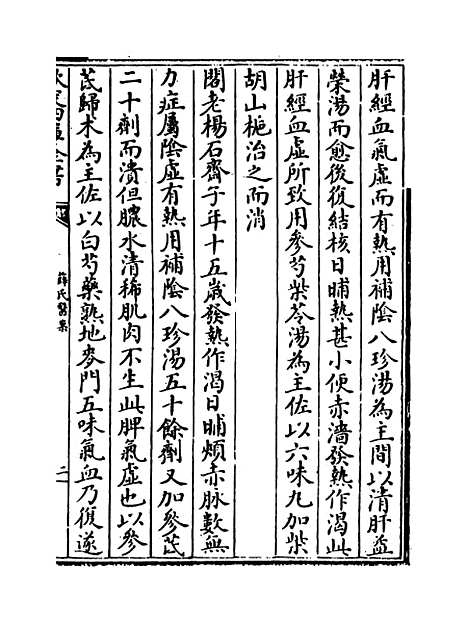 肝經血氣虛而有熱用補陰八珍湯為主間以清肝益
榮湯而愈後復結核日晡熱甚小便赤濇發熱作渴此
肝經血虛所致用參芍柴苓湯為主佐以六味丸加柴
胡山梔治之而消
閣老楊石齋子年十五歲發熱作渴日晡頰赤脉數無
力症屬陰虛有熱用補陰八珍湯五十餘劑又加參芪
二十劑而潰但膿水清稀肌肉不生此脾氣虛也以參
芪歸术為主佐以白芍藥熟地麥門五味氣血乃復遂
欽定四庫全書
薛氏醫案
二